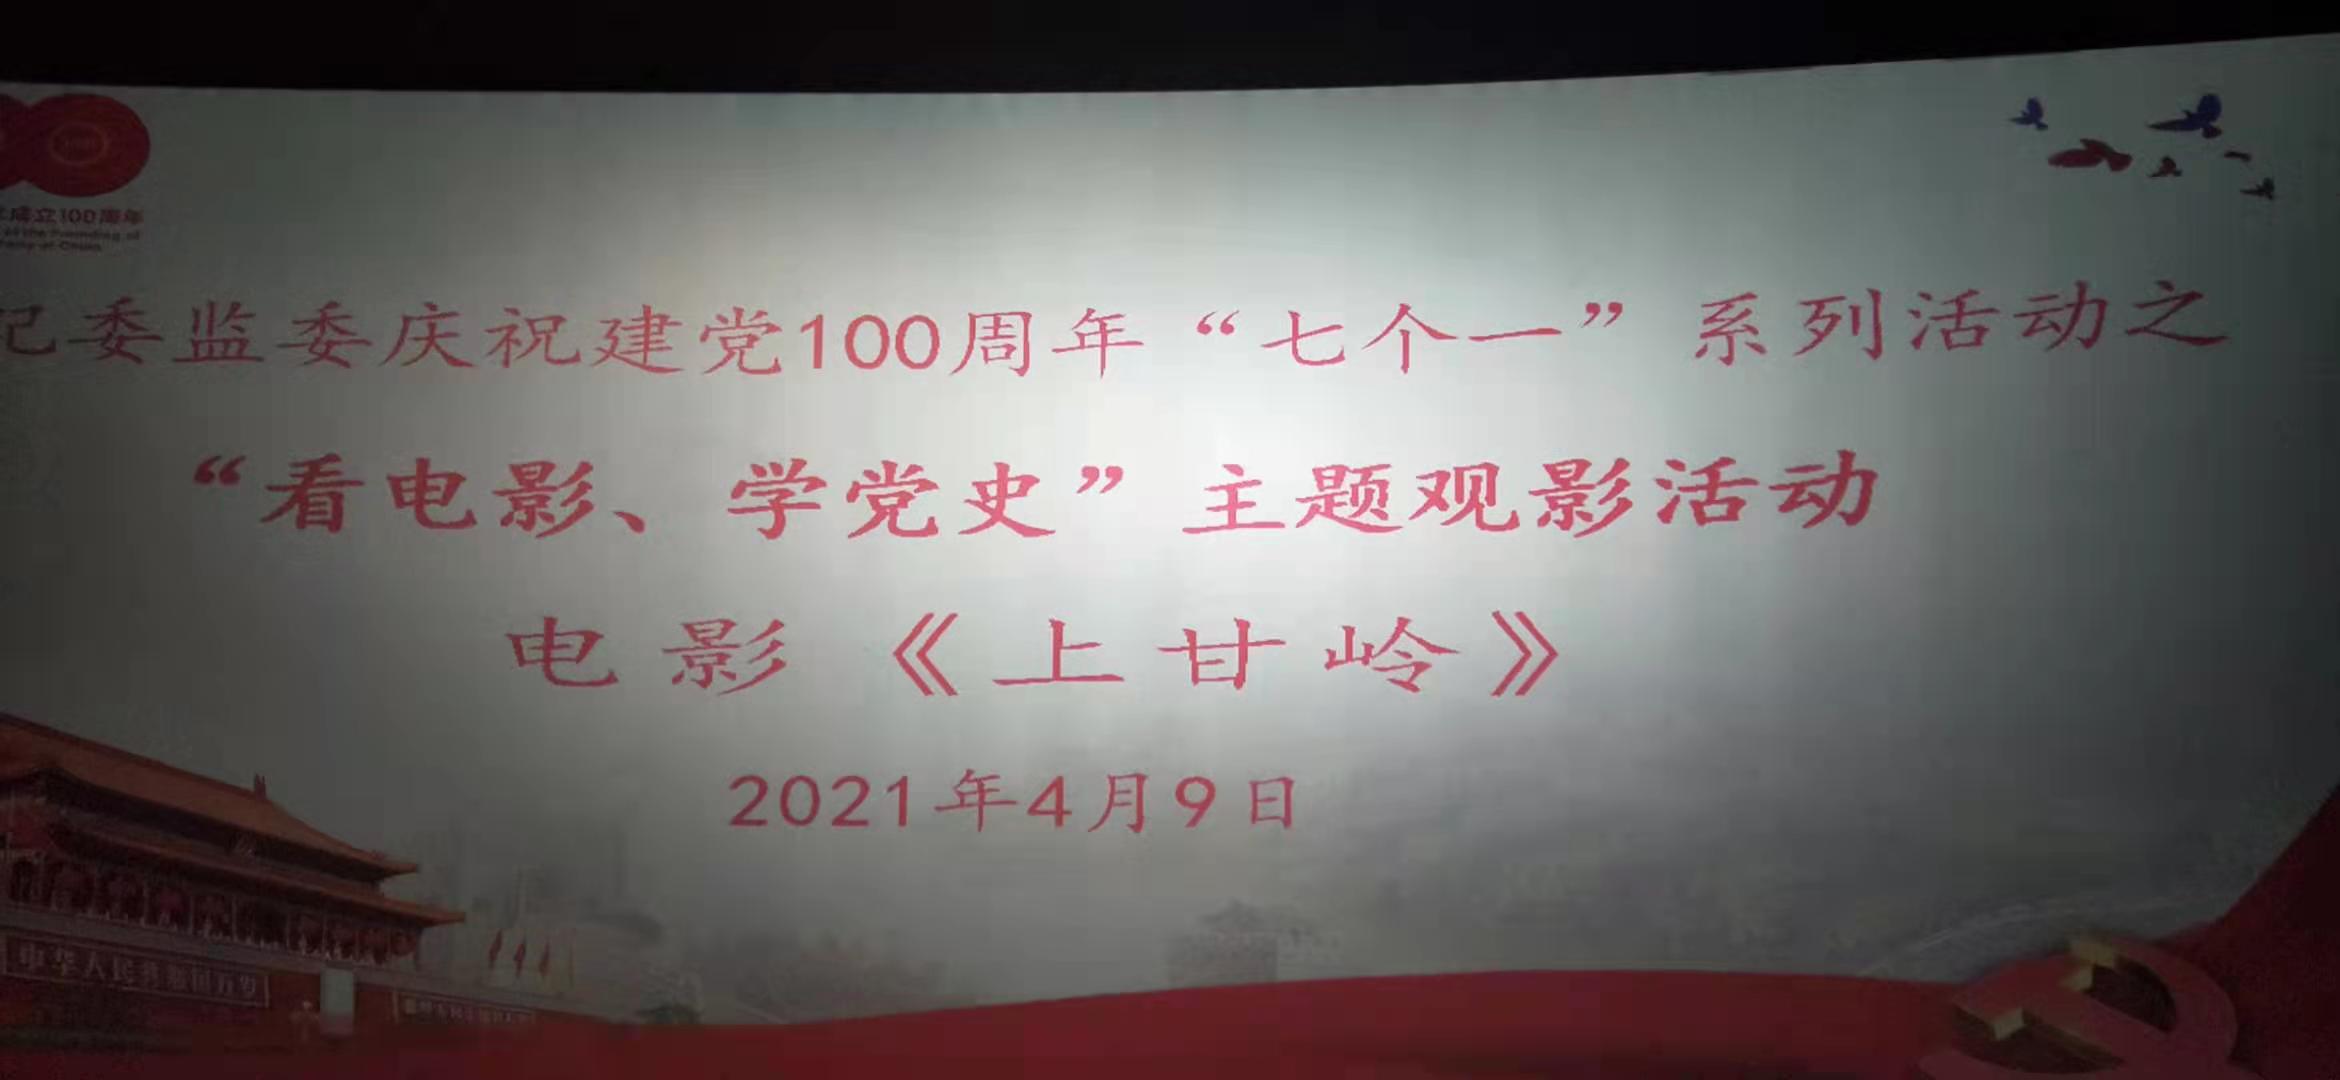 成立100周年
of the Founding of
Party of China
纪委监委庆祝建党100周年“七个一”系列活动之
“看电影、学党史”主题观影活动
电影《上甘岭》
2021年4月9日
中华人民共和国万岁